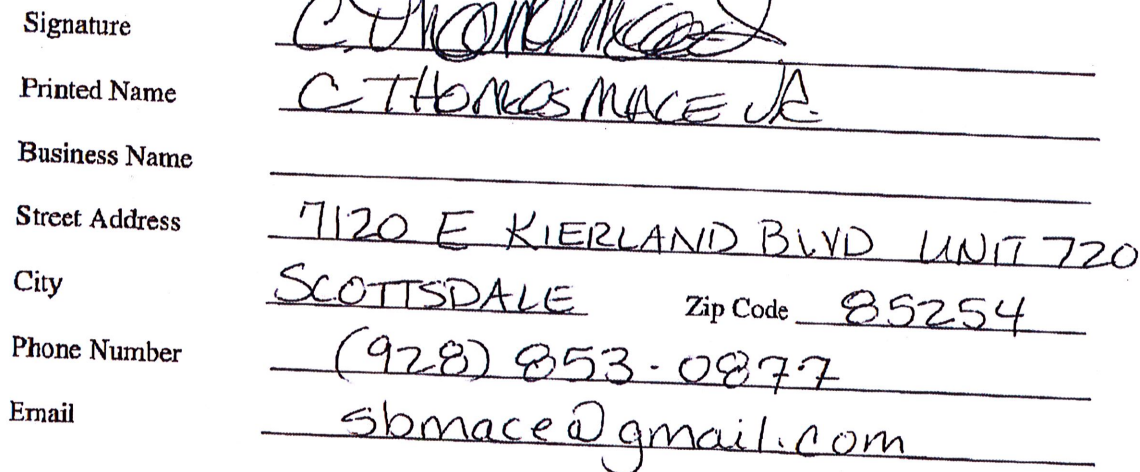 Signature C. Thomas Mace Jr
Printed Name C. THOMAS MACE JR.
Business Name
Street Address 7120 E KIERLAND BLVD UNIT 720
City SCOTTSDALE Zip Code 85254
Phone Number (928) 853-0877
Email sbmace@gmail.com